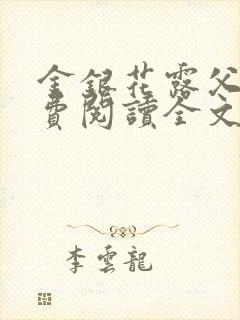 金銀花露父
費閱讀全文
李雲龍